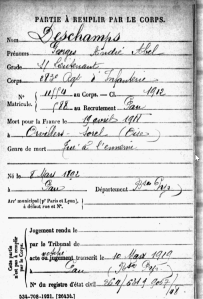 PARTIE À REMPLIR PAR LE CORPS.
Nom Deschamps
Prénoms Georges André Abel
Grade S/ Lieutenant
Corps 283e Rgt d'Infanterie
N° 11154 au Corps. — Cl. 1912
Matricule. 88 au Recrutement Pau
Mort pour la France le avril 1918
à Orvillers-Sorel (Oise)
Genre de mort Tué à l'ennemi
Né le 8 Mars 1892
à Pau Département Bses Pyr.
Arrt municipal (pr Paris et Lyon),
à défaut rue et N°.
Cette partie
n'est pas à remplir
par le Corps.
Jugement rendu le
par le Tribunal de
acte ou jugement transcrit le 10 Mai 1919
à Pau
N° du registre d'état civil
534-708-1921. [26434.]